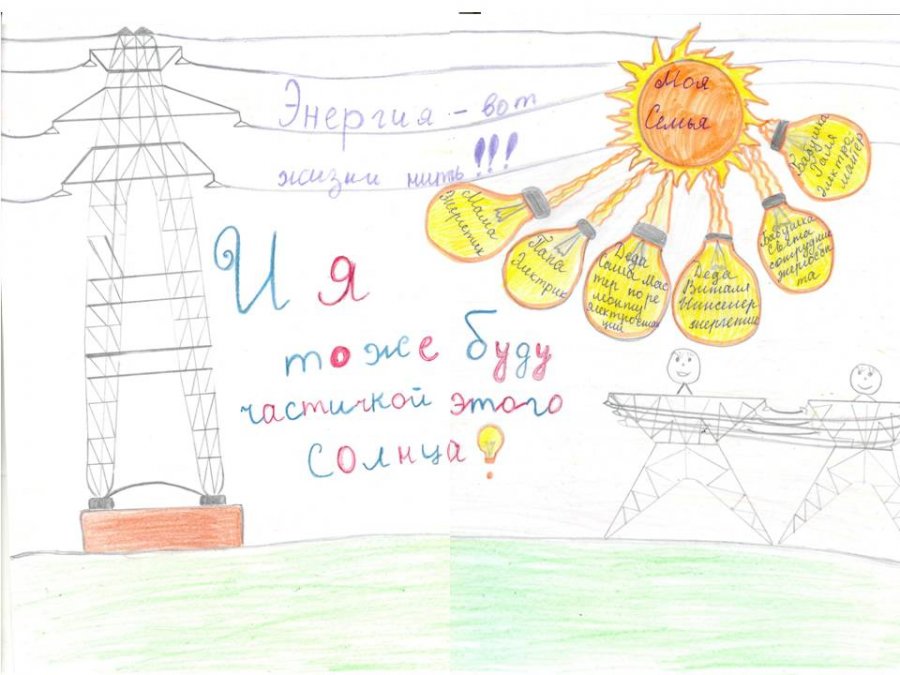 Энергия - вот
жизни нить!!!
Моя
Семья
Мама
Энергетик
Папа
Электрик
Деда
Саша Мас
тер по ре
монту
электростан
ций
Деда
Виталя
Инженер
энергетик
Бабушка
Света
сотрудник
энергосбы
та
Бабушка
Галя
Электро
майтер
И я
тоже буду
частичкой этого
Солнца